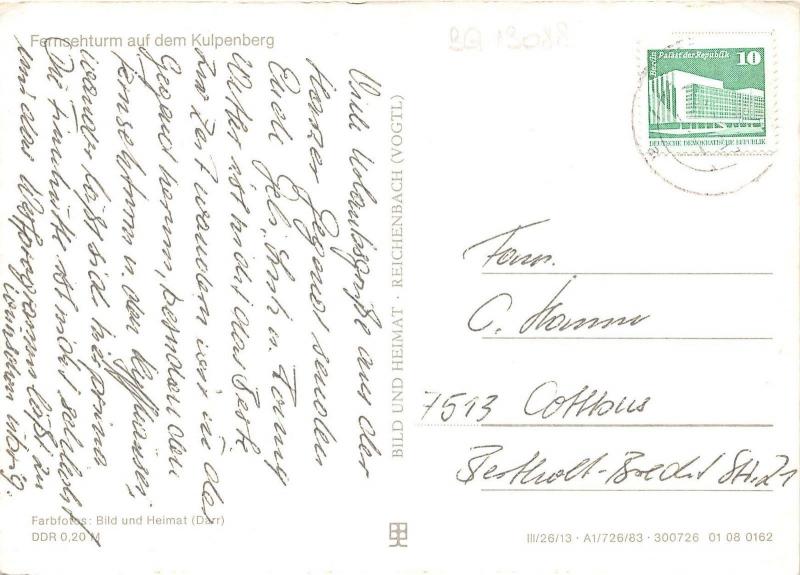 Fernsehturm auf dem Kulpenberg
Viele Urlaubsgrüße aus der
Harzer Gegend senden
Euch u.
Wetter ist nicht das Beste
zur Zeit wandern wir in der
Gegend herum, besuchen den
Fernsehturm u. den Kyffhäuser,
wandern läßt sich hier prima
Die ist nicht schlecht
und das läßt zu
wünschen übrig.
Farbfotos: Bild und Heimat (Darr)
DDR 0,20 M
BILD UND HEIMAT · REICHENBACH (VOGTL)
Berlin Palast der Republik 10
DEUTSCHE DEMOKRATISCHE REPUBLIK
Fam.
C. Hamm
7513 Cottbus
Bertholt-Brecht Str. 21
III/26/13 · A1/726/83 · 300726 01 08 0162